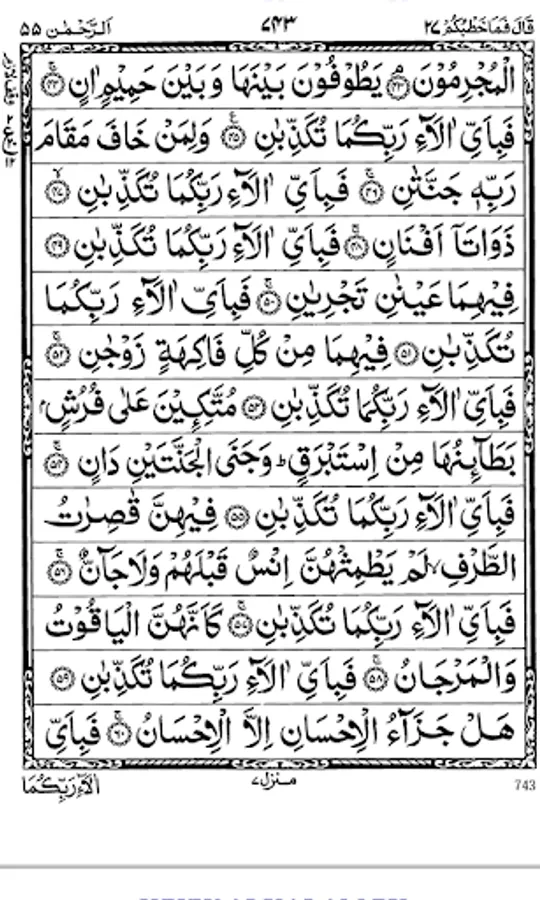 قَالَ فَمَا خَطْبُكُمْ ٢٧ ٧٤٣ اَلرَّحْمٰن ٥٥
الْمُجْرِمُوْنَ ﴿٤٣﴾ يَطُوْفُوْنَ بَيْنَهَا وَبَيْنَ حَمِيْمٍ اٰنٍ ﴿٤٤﴾
فَبِاَيِّ اٰلَآءِ رَبِّكُمَا تُكَذِّبٰنِ ﴿٤٥﴾ وَلِمَنْ خَافَ مَقَامَ
رَبِّهٖ جَنَّتٰنِ ﴿٤٦﴾ فَبِاَيِّ اٰلَآءِ رَبِّكُمَا تُكَذِّبٰنِ ﴿٤٧﴾
ذَوَاتَآ اَفْنَانٍ ﴿٤٨﴾ فَبِاَيِّ اٰلَآءِ رَبِّكُمَا تُكَذِّبٰنِ ﴿٤٩﴾
فِيْهِمَا عَيْنٰنِ تَجْرِيٰنِ ﴿٥٠﴾ فَبِاَيِّ اٰلَآءِ رَبِّكُمَا
تُكَذِّبٰنِ ﴿٥١﴾ فِيْهِمَا مِنْ كُلِّ فَاكِهَةٍ زَوْجٰنِ ﴿٥٢﴾
فَبِاَيِّ اٰلَآءِ رَبِّكُمَا تُكَذِّبٰنِ ﴿٥٣﴾ مُتَّكِـِٕيْنَ عَلٰى فُرُشٍۭ
بَطَآئِنُهَا مِنْ اِسْتَبْرَقٍ ؕ وَجَنَى الْجَنَّتَيْنِ دَانٍ ﴿٥٤﴾
فَبِاَيِّ اٰلَآءِ رَبِّكُمَا تُكَذِّبٰنِ ﴿٥٥﴾ فِيْهِنَّ قٰصِرٰتُ
الطَّرْفِ ۙ لَمْ يَطْمِثْهُنَّ اِنْسٌ قَبْلَهُمْ وَلَا جَآنٌّ ﴿٥٦﴾
فَبِاَيِّ اٰلَآءِ رَبِّكُمَا تُكَذِّبٰنِ ﴿٥٧﴾ كَاَنَّهُنَّ الْيَاقُوْتُ
وَالْمَرْجَانُ ﴿٥٨﴾ فَبِاَيِّ اٰلَآءِ رَبِّكُمَا تُكَذِّبٰنِ ﴿٥٩﴾
هَلْ جَزَآءُ الْاِحْسَانِ اِلَّا الْاِحْسَانُ ﴿٦٠﴾ فَبِاَيِّ
اٰلَآءِ رَبِّكُمَا منزل ٧ 743